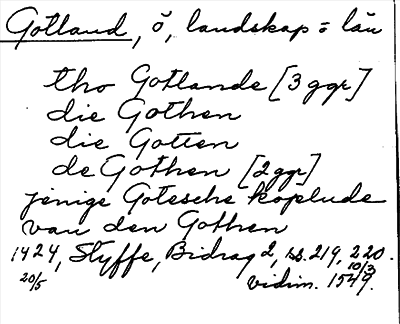 Gotland, ö, landskap o län
tho Gotlande [3 ggr]
die Gothen
die Gotten
de Gothen [2 ggr]
jenige Gotesche koplude
van den Gothen
1424, Styffe, Bidrag 2, ss. 219, 220.
20/5 vidim. 10/3 1549.